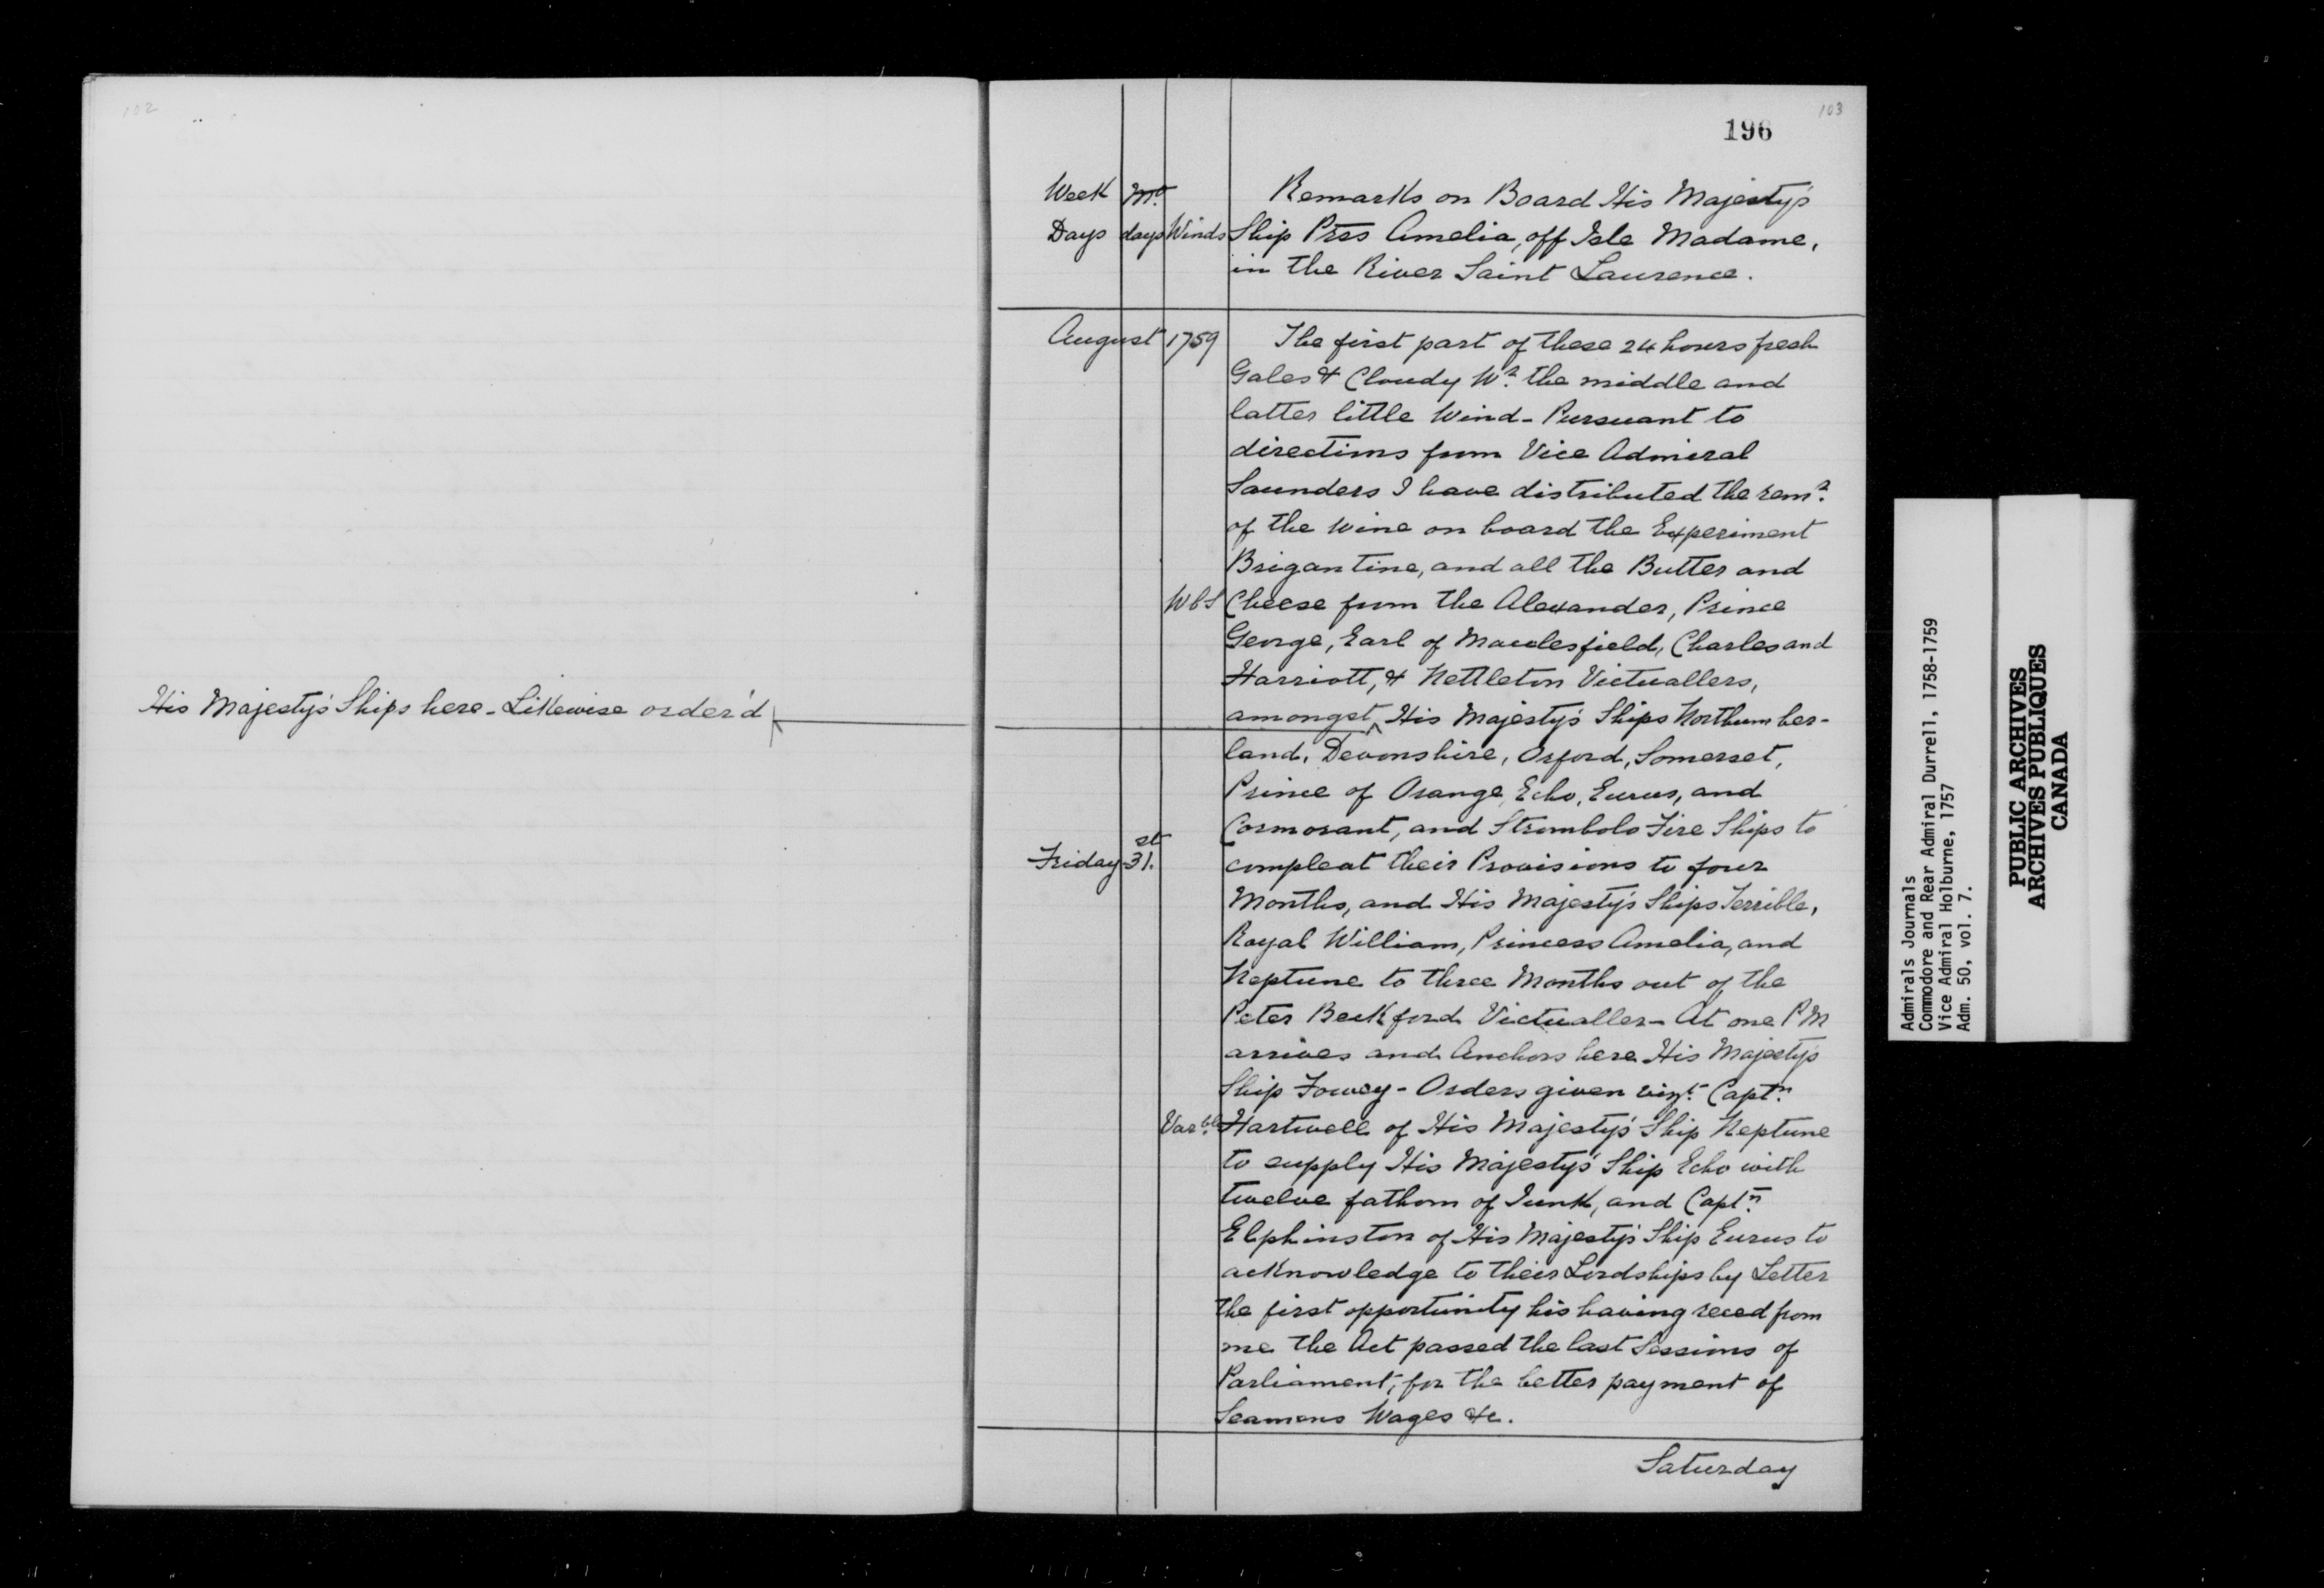 102
His Majesty's Ships here - Likewise order'd
103
196
Week Mo. Remarks on Board His Majesty's
Days days Winds Ship Prss Amelia, off Isle Madame,
in the River Saint Laurence.
August 1759 The first part of these 24 hours fresh
Gales & Cloudy Wr. the middle and
latter little Wind - Pursuant to
directions from Vice Admiral
Saunders I have distributed the remr.
of the wine on board the Experiment
Brigantine, and all the Butter and
WbS Cheese from the Alexander, Prince
George, Earl of Macclesfield, Charles and
Harriott, & Nettleton Victuallers,
amongst ^ His Majesty's Ships Northumber-
land, Devonshire, Orford, Somerset,
Prince of Orange, Echo, Eurus, and
Cormorant, and Strombolo Fire Ships to
Friday 31st. compleat their Provisions to four
Months, and His Majesty's Ships Terrible,
Royal William, Princess Amelia, and
Neptune to three Months out of the
Peter Beckford Victualler - At one PM
arrives and Anchors here His Majesty's
Ship Fowey - Orders given vizt. Captn.
Varble. Hartwell of His Majesty's Ship Neptune
to supply His Majesty's Ship Echo with
twelve fathom of Junk, and Captn.
Elphinston of His Majesty's Ship Eurus to
acknowledge to their Lordships by Letter
the first opportunity his having reced from
me the Act passed the last Sessions of
Parliament, for the better payment of
Seamens Wages &c.
Saturday
Admirals Journals
Commodore and Rear Admiral Durrell, 1758-1759
Vice Admiral Holburne, 1757
Adm. 50, vol. 7.
PUBLIC ARCHIVES
ARCHIVES PUBLIQUES
CANADA